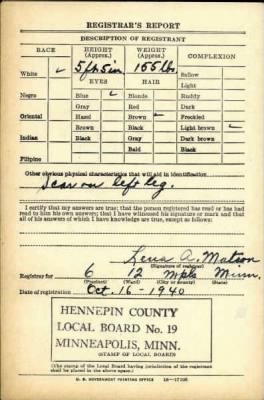 REGISTRAR'S REPORT
DESCRIPTION OF REGISTRANT
RACE HEIGHT (Approx.) WEIGHT (Approx.) COMPLEXION
White ✓ 5 ft 5 in 155 lbs. Sallow
EYES HAIR Light
Negro Blue ✓ Blonde Ruddy
Gray Red Dark
Oriental Hazel Brown ✓ Freckled
Brown Black Light brown ✓
Indian Black Gray Dark brown
Bald Black
Filipino
Other obvious physical characteristics that will aid in identification
Scar on left leg.
I certify that my answers are true; that the person registered has read or has had
read to him his own answers; that I have witnessed his signature or mark and that
all of his answers of which I have knowledge are true, except as follows:
Lena A. Matson
(Signature of registrar)
Registrar for 6 12 Mpls Minn.
(Precinct) (Ward) (City or county) (State)
Date of registration Oct. 16 - 1940
HENNEPIN COUNTY
LOCAL BOARD No. 19
MINNEAPOLIS, MINN.
(STAMP OF LOCAL BOARD)
(The stamp of the Local Board having jurisdiction of the registrant
shall be placed in the above space.)
U. S. GOVERNMENT PRINTING OFFICE 16-17105